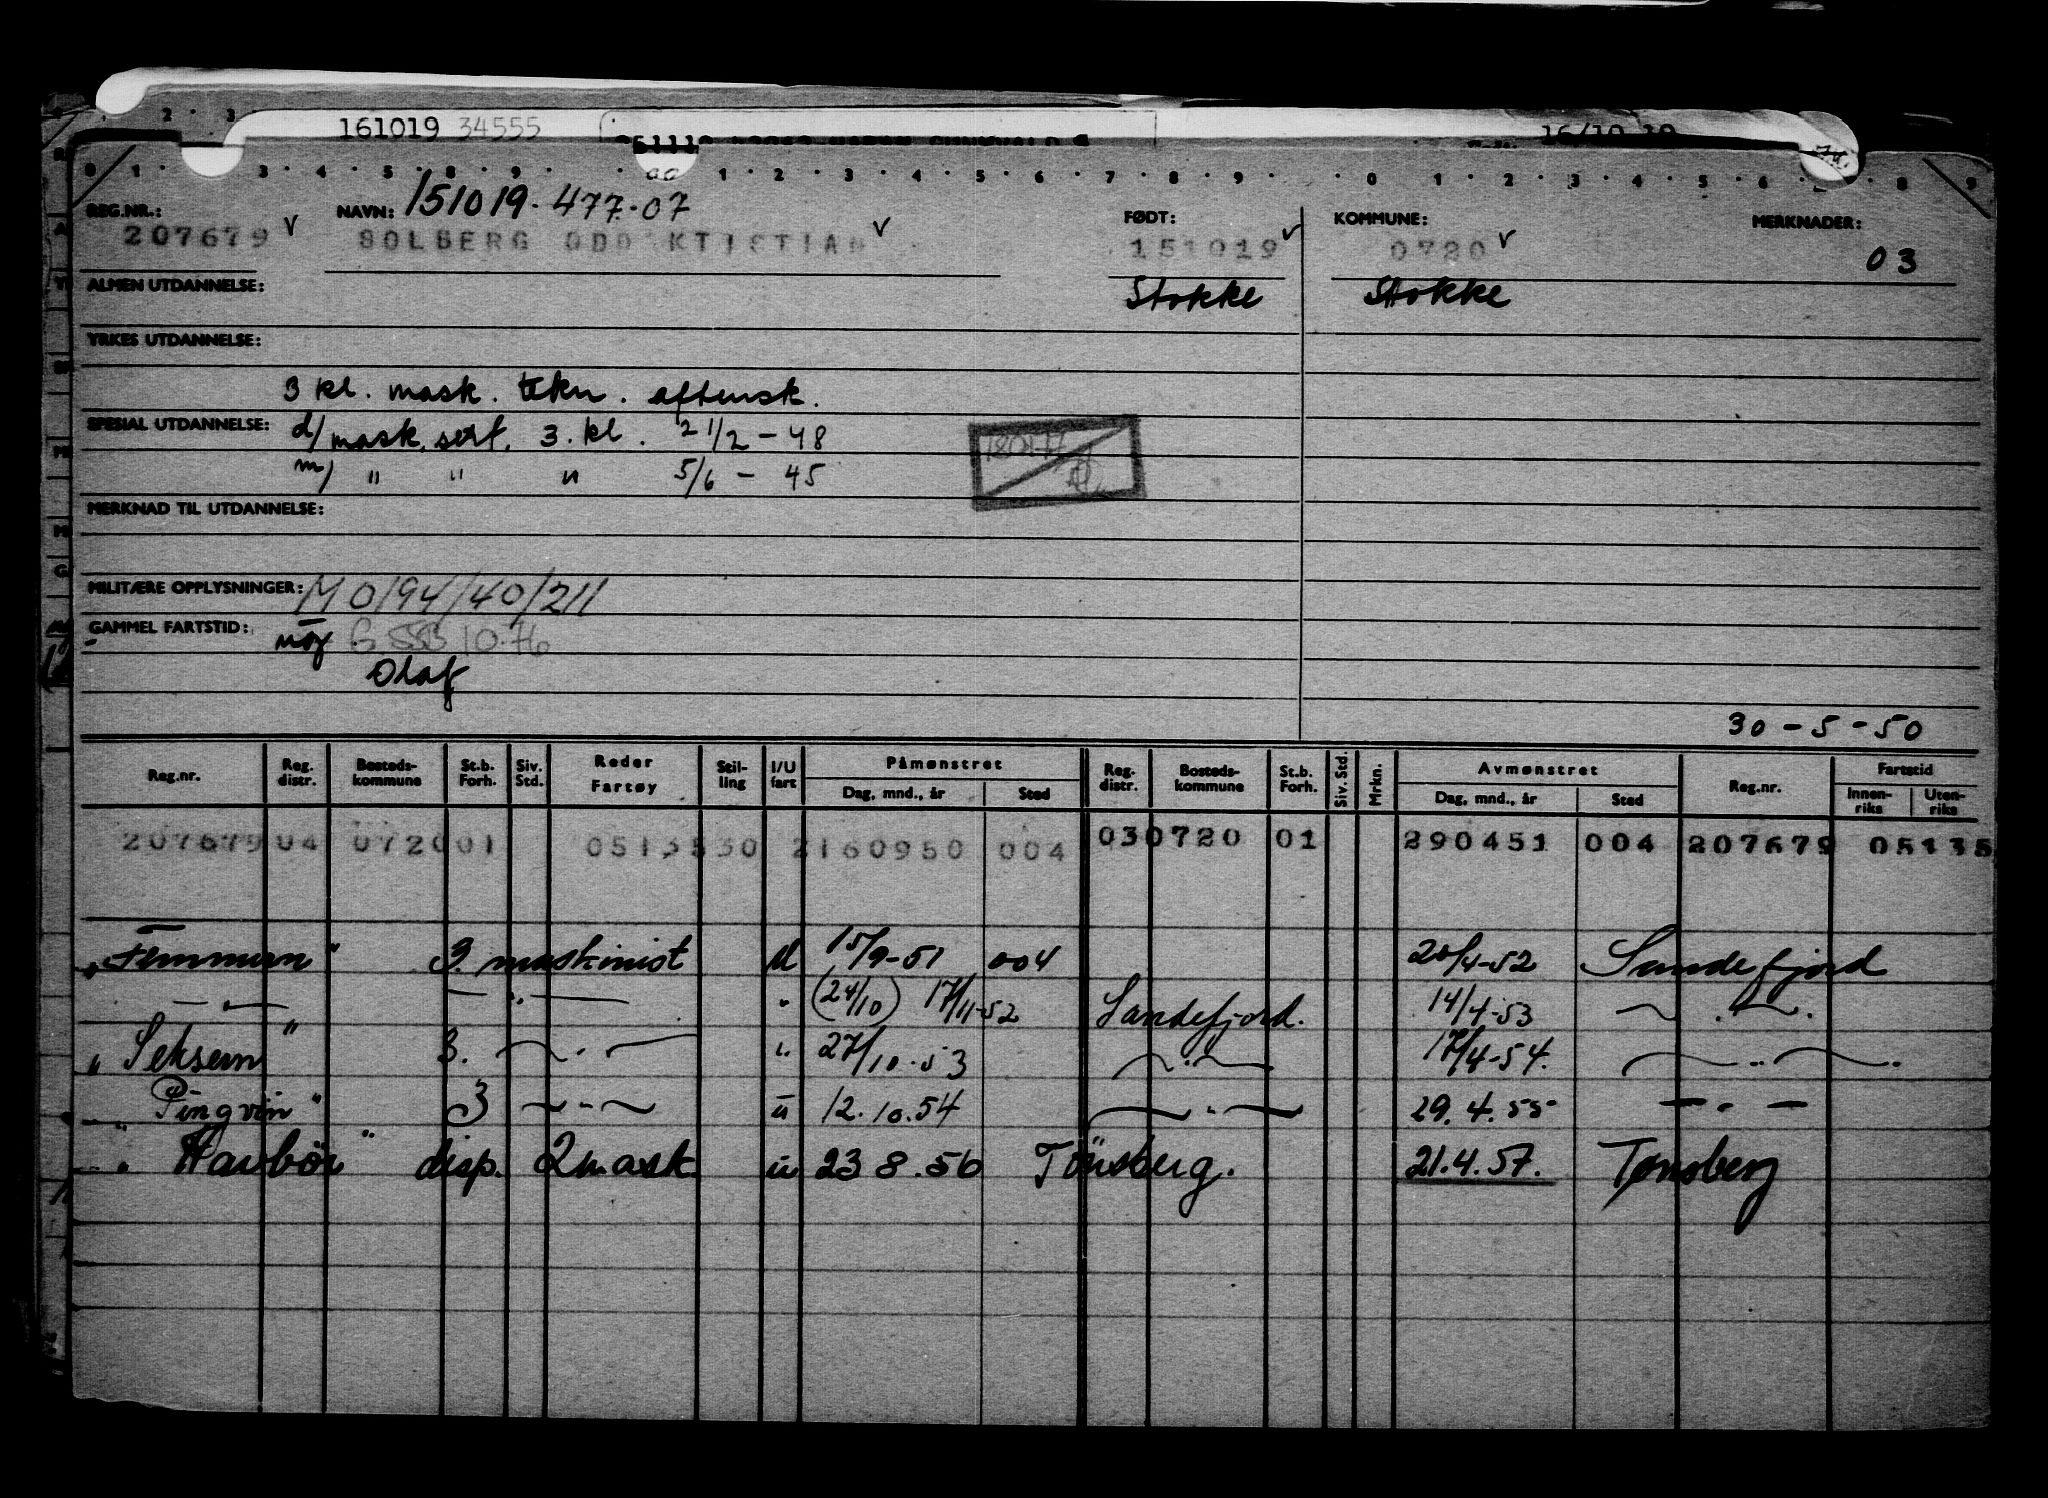 161019 34555
16/10 19
151019-477-07
REG.NR.: NAVN: FØDT: KOMMUNE: MERKNADER:
207679 SOLBERG ODD KTISTIAN 151019 0720 03
ALMEN UTDANNELSE: Stokke Stokke
YRKES UTDANNELSE:
3 kl. mask. tekn. aftensk.
SPESIAL UTDANNELSE: d/ mask. sert. 3. kl. 2 1/2 - 48
m/ " " " 5/6 - 45
MERKNAD TIL UTDANNELSE:
MILITÆRE OPPLYSNINGER: M 0/94/40/211
GAMMEL FARTSTID: 10.76
Olaf
30-5-50
Reg.nr. Reg. distr. Bosteds-kommune St.b. Forh. Siv. Std. Reder Fartøy Stil-ling I/U fart Påmønstret Dag, mnd., år Sted Reg. distr. Bosteds-kommune St.b. Forh. Siv. Std. Mrkn. Avmønstret Dag, mnd., år Sted Reg.nr. Fartstid Innen-riks Uten-riks
207679 04 0720 01 0513530 2160950 004 03 0720 01 290451 004 207679 05135
"Femmern" 3. maskinist u 15/9-51 004 20/4-52 Sandefjord
— " — — " — " (24/10) 17/11-52 Sandefjord. 14/4-53 — " —
"Seksern" 3. — " — " 27/10-53 — " — 17/4-54. — " —
"Pingvin" 3 — " — u 12.10.54 — " — 29.4.55 — " —
"Havbör" disp. 2 mask. u 23 8.56 Tönsberg. 21.4.57. Tønsberg